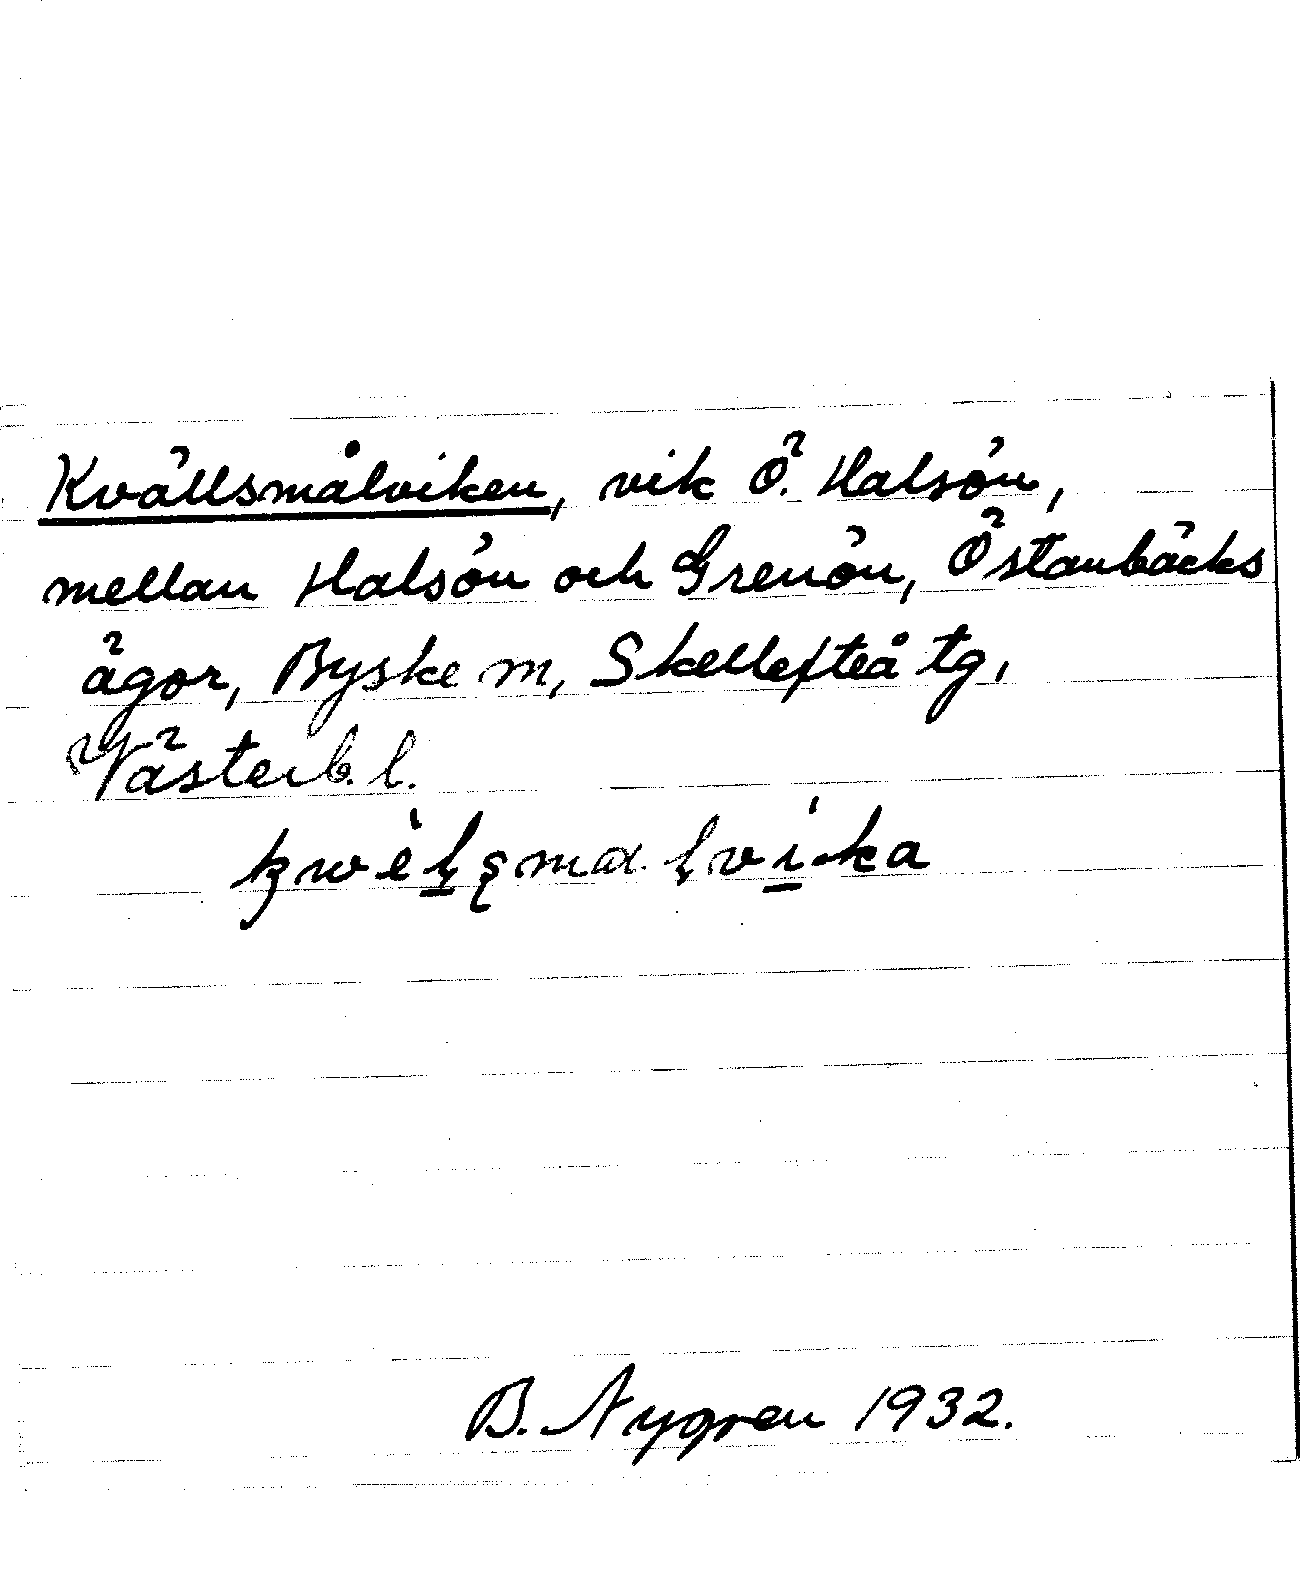 Kvällsmålviken, vik Ö. Halsön,
mellan Halsön och Grenön, Östanbäcks
ägor, Byske m, Skellefteå tg,
Västerb. l.
B. Nygren 1932.